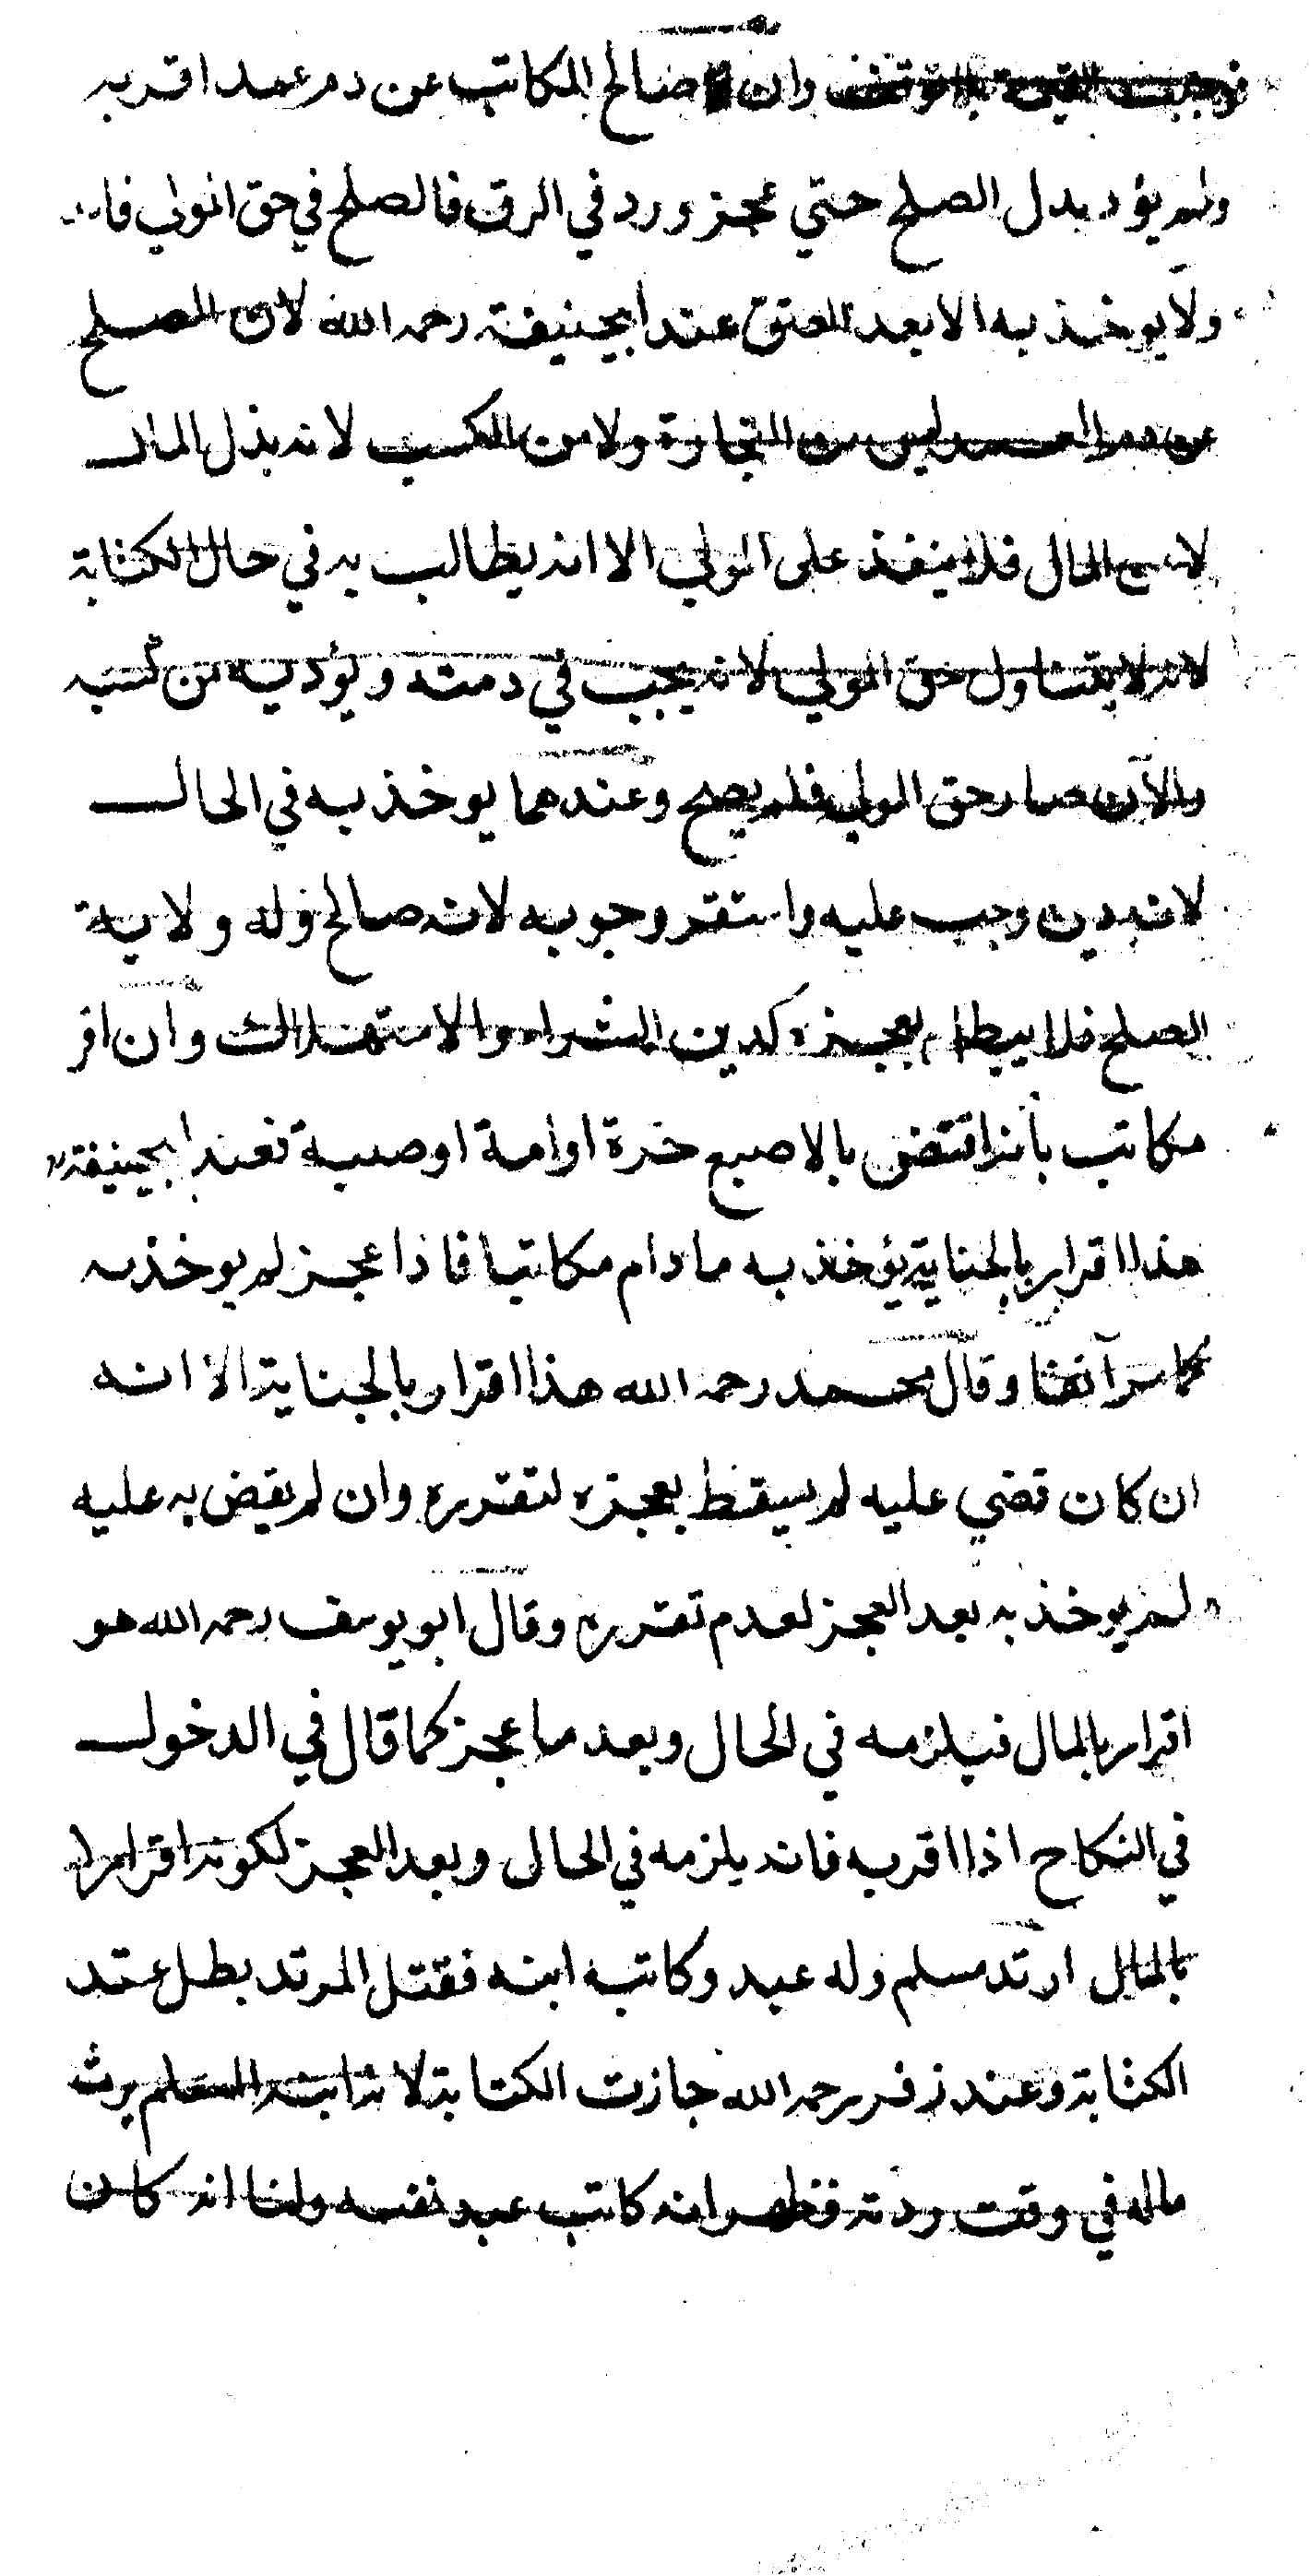 فوجبت القيمة بالتوقف وان صالح المكاتب عن دم عمد اقر به
ولم يؤد بدل الصلح حتي عجز ورد في الرق فالصلح في حق المولي
ولا يوخذ به الا بعد العتق عند ابيحنيفة رحمه الله لان الصلح
عن دم العمد ليس من التجارة ولا من الكسب لانه بذل المال
المال فلا ينفذ على المولي الا انه يطالب به في حال الكتابة
لانه لا يتناول حق المولي لانه يجب في دمته ويؤديه من كسبه
والآن صار حق المولي فلم يصح وعندهما يوخذ به في الحال
لانه دين وجب عليه واستقر وجوبه لانه صالح وله ولاية
الصلح فلا يبطل بعجزه كدين الشراء والاستهلاك وان اقر
مكاتب بانه اقتض بالاصبع حرة او امة او صبية فعند ابيحنيفة
هذا اقرار بالجناية يؤخذ به ما دام مكاتبا فاذا عجز لم يوخذ به
كما مر آنفا وقال محمد رحمه الله هذا اقرار بالجناية الا انه
ان كان قضي عليه لم يسقط بعجزه لتقرره وان لم يقض به عليه
لم يوخذ به بعد العجز لعدم تقرره وقال ابو يوسف رحمه الله هو
اقرار بالمال فيلزمه في الحال وبعد ما عجز كما قال في الدخول
في النكاح اذا اقر به فانه يلزمه في الحال وبعد العجز لكونه اقرارا
بالمال ارتد مسلم وله عبد وكاتبه ابنه فقتل المرتد بطل عتد
الكتابة وعند زفر رحمه الله جازت الكتابة لان ابنه المسلم يرث
ماله في وقت ردته فظهر انه كاتب عبد نفسه ولنا انه كان